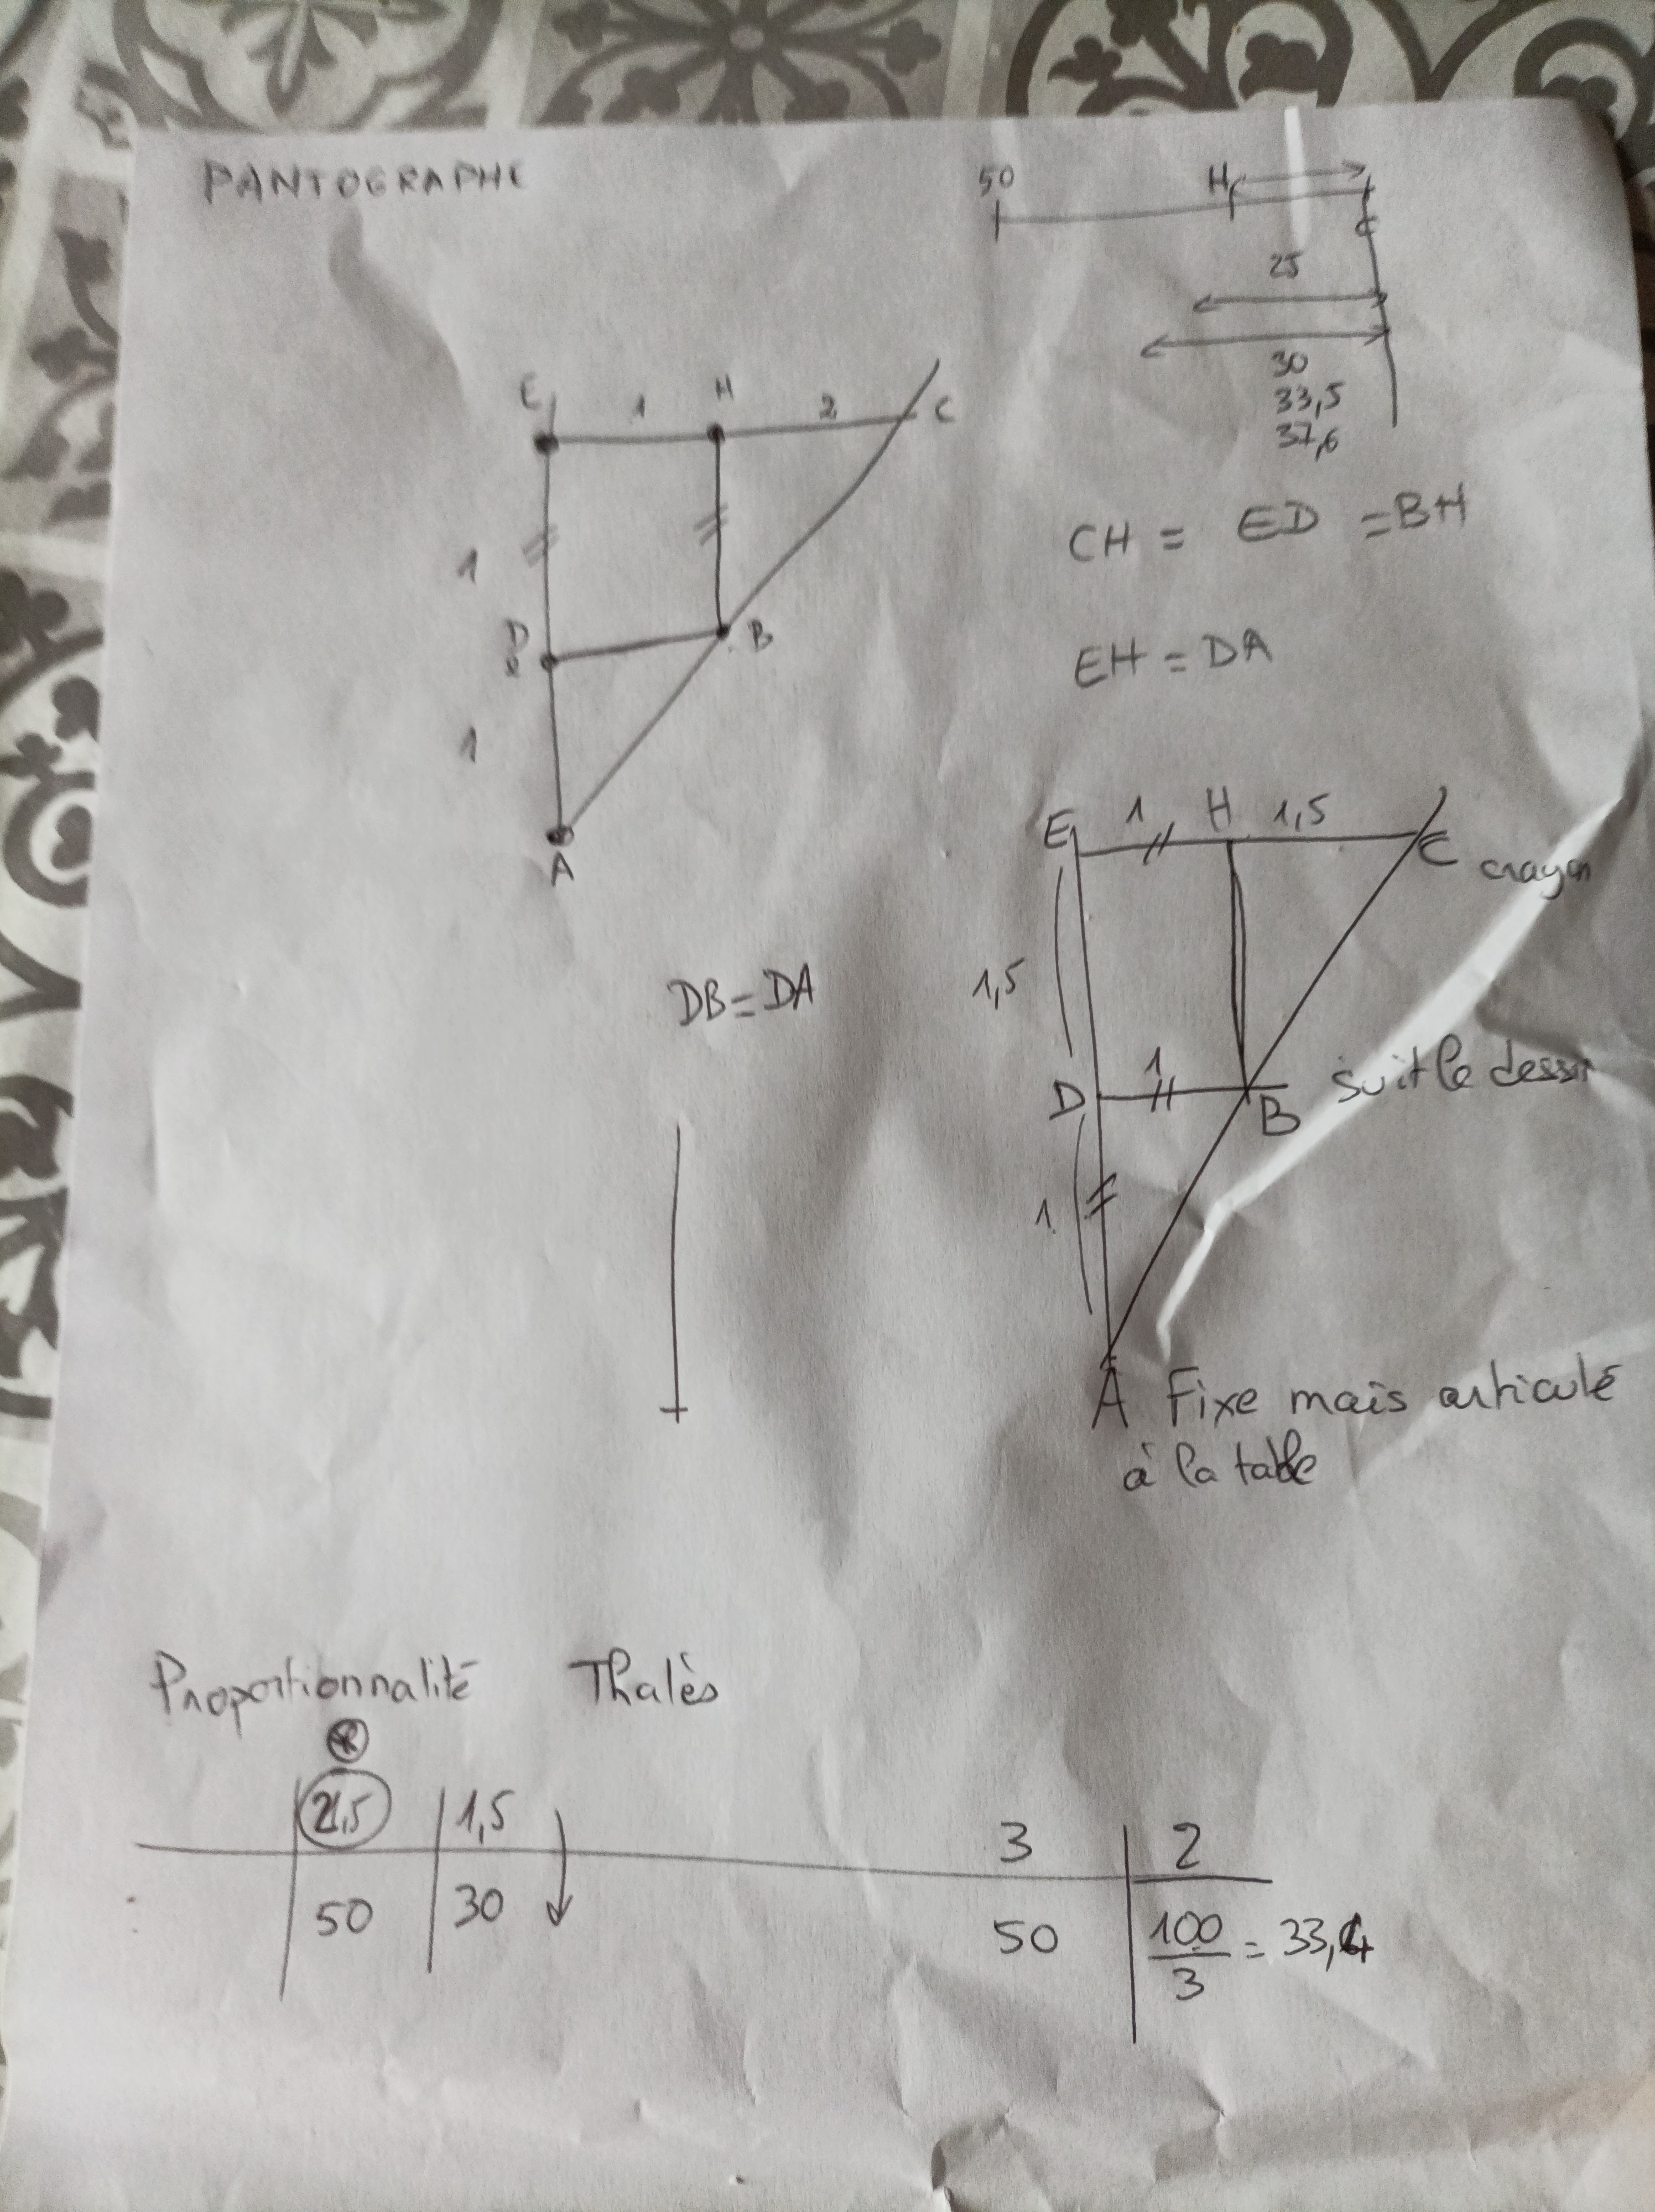 PANTOGRAPHE
50 H
C
25
30
33,5
37,6
E 1 H 2 C
1
D
B
1
A
CH = ED = BH
EH = DA
E 1 H 1,5
C crayon
DB = DA
1,5
D 1
B suit le dessin
1
A Fixe mais articulé
à la table
Proportionnalité Thalès
1,5
50 30
3 2
50 100/3 = 33,4